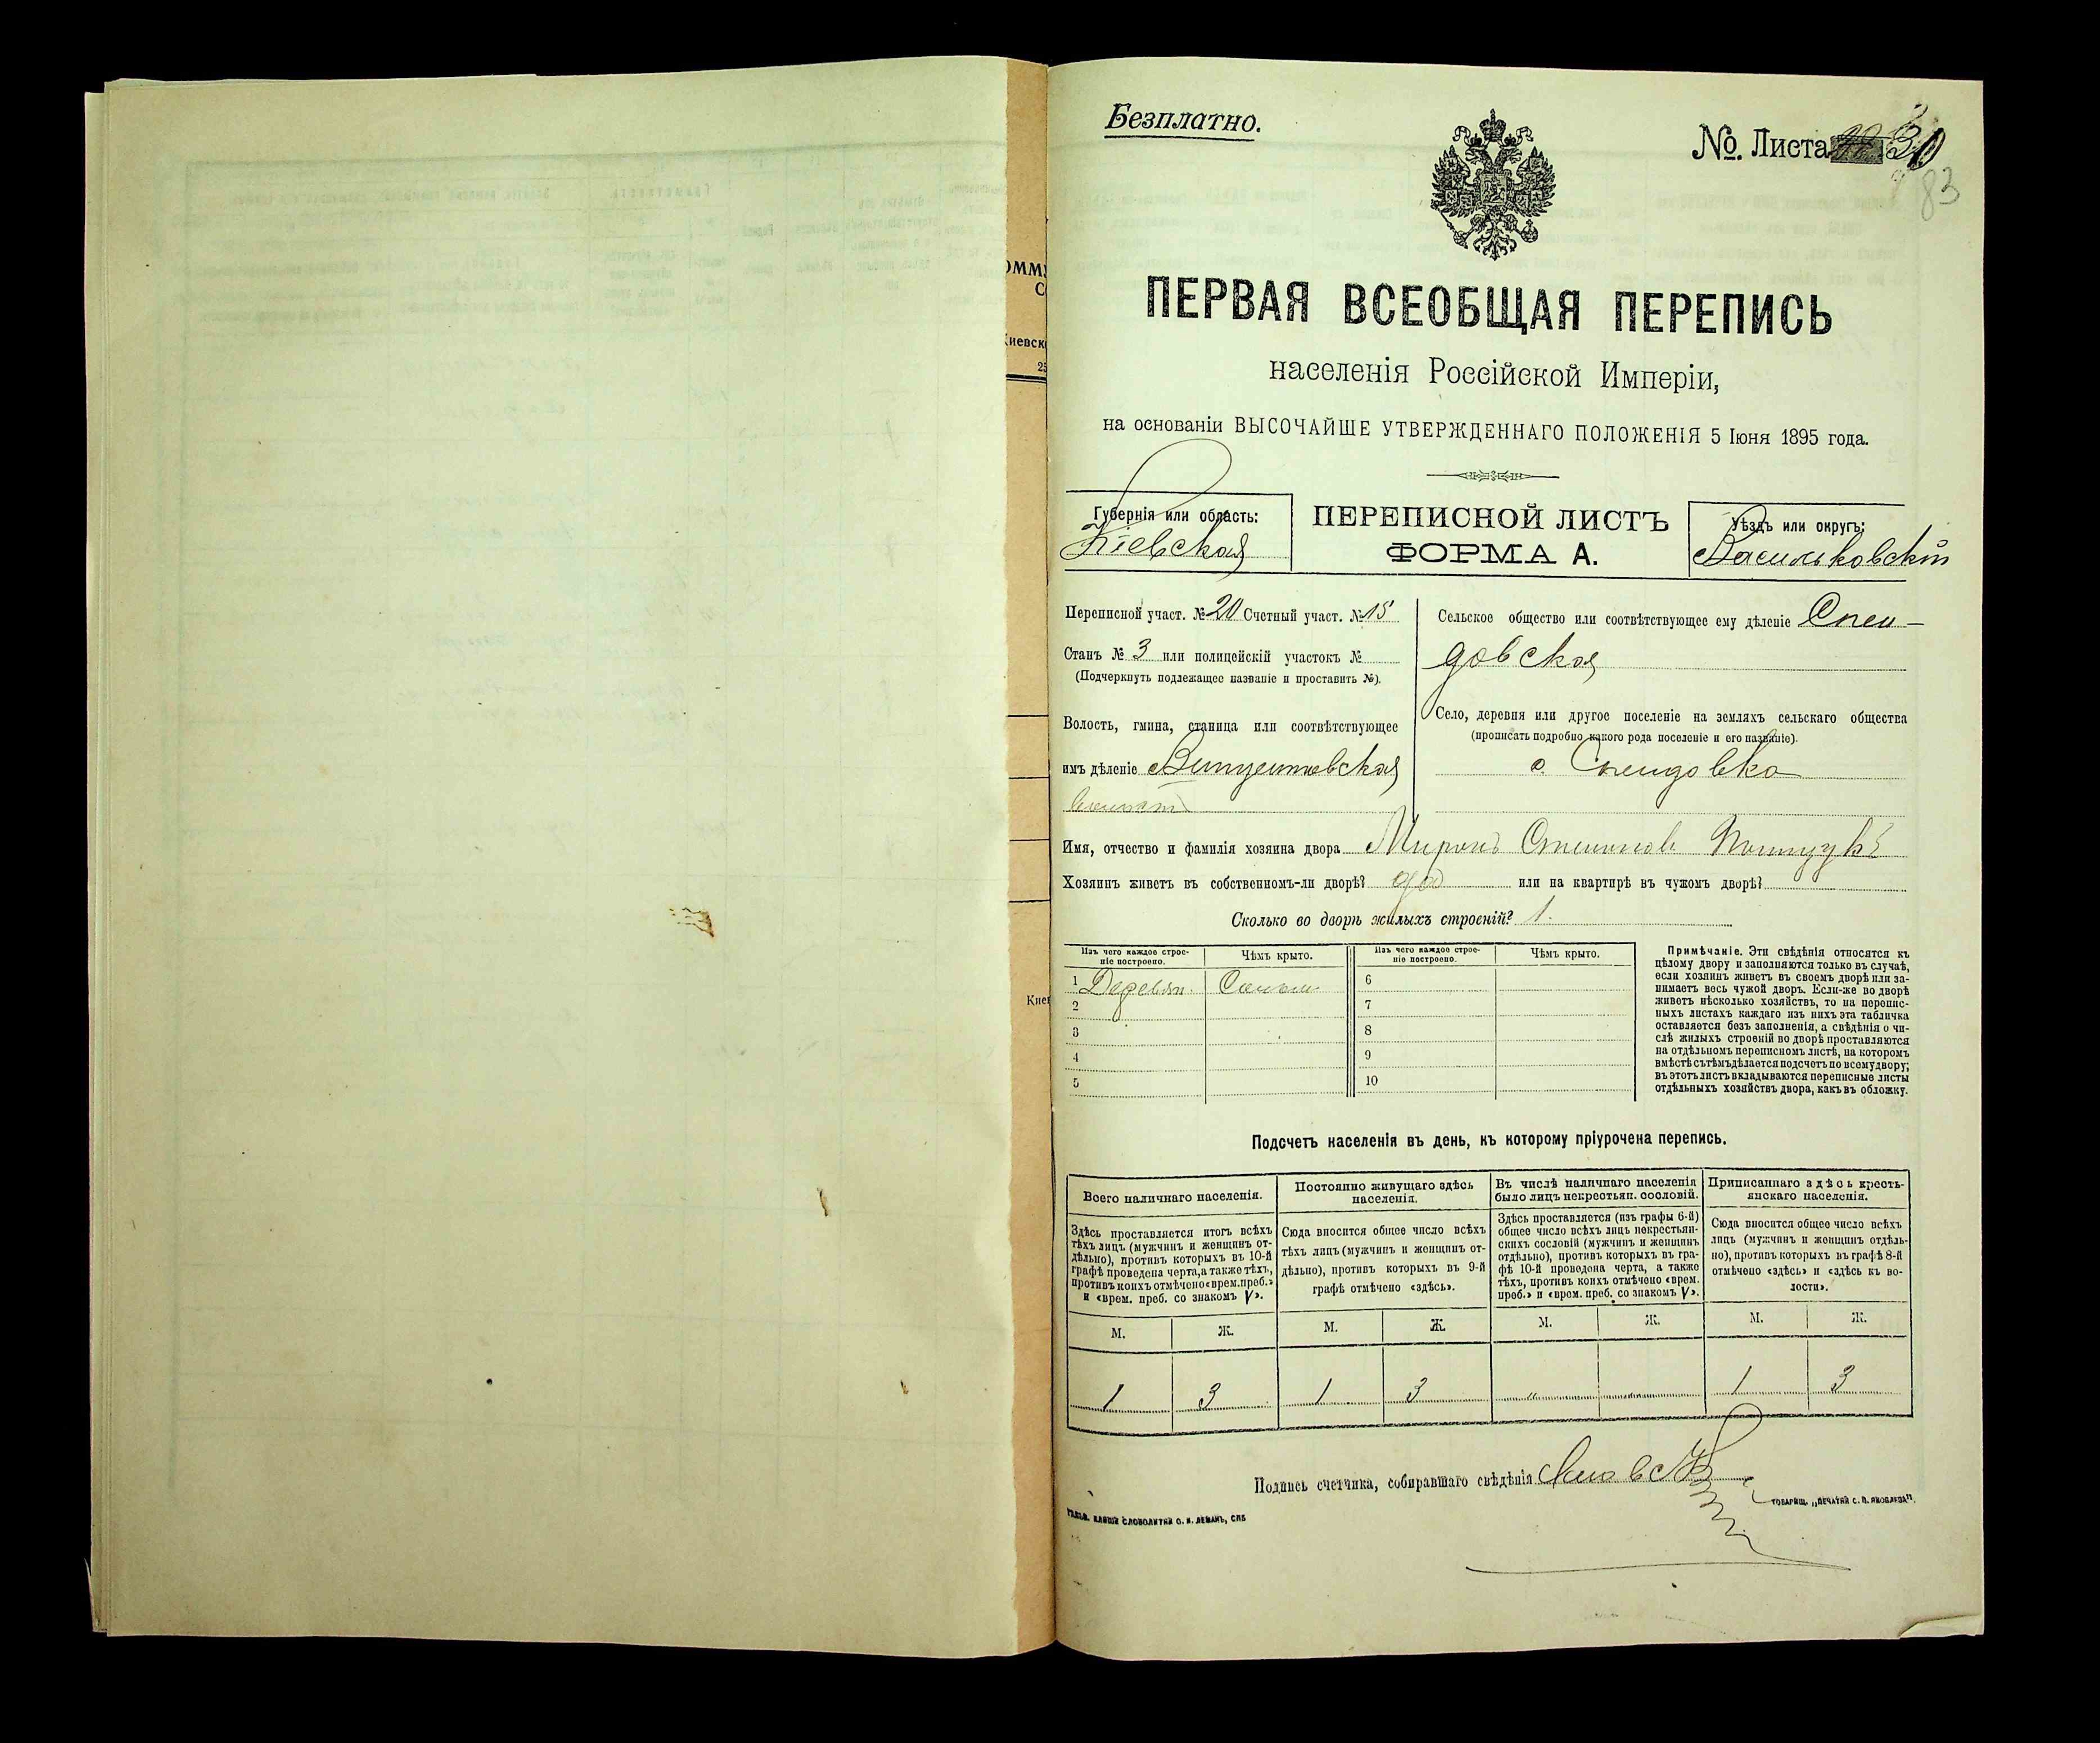 Безплатно.
No. Листа 30
83
ПЕРВАЯ ВСЕОБЩАЯ ПЕРЕПИСЬ
населенія Россійской Имперіи,
на основаніи ВЫСОЧАЙШЕ УТВЕРЖДЕННАГО ПОЛОЖЕНІЯ 5 Іюня 1895 года.
Губернія или область:
Кіевская
ПЕРЕПИСНОЙ ЛИСТЪ
ФОРМА А.
Уѣздъ или округъ:
Васильковскій
Переписной участ. № 20 Счетный участ. № 15
Станъ № 3 или полицейскій участокъ №
(Подчеркнуть подлежащее названіе и проставить №).
Волость, гмина, станица или соотвѣтствующее
имъ дѣленіе
Сельское общество или соотвѣтствующее ему дѣленіе
Село, деревня или другое поселеніе на земляхъ сельскаго общества
(прописать подробно какого рода поселеніе и его названіе).
Имя, отчество и фамилія хозяина двора Миронъ
Хозяинъ живетъ въ собственномъ-ли дворѣ? да или на квартирѣ въ чужомъ дворѣ?
Сколько во дворѣ жилыхъ строеній? 1.
Изъ чего каждое строе-
ніе построено.
Чѣмъ крыто.
Изъ чего каждое строе-
ніе построено.
Чѣмъ крыто.
1 Деревян. 6
2 7
3 8
4 9
5 10
Примѣчаніе. Эти свѣдѣнія относятся къ
цѣлому двору и заполняются только въ случаѣ,
если хозяинъ живетъ въ своемъ дворѣ или за-
нимаетъ весь чужой дворъ. Если-же во дворѣ
живетъ нѣсколько хозяйствъ, то на перепис-
ныхъ листахъ каждаго изъ нихъ эта табличка
оставляется безъ заполненія, а свѣдѣнія о чи-
слѣ жилыхъ строеній во дворѣ проставляются
на отдѣльномъ переписномъ листѣ, на которомъ
вмѣстѣ съ тѣмъ дѣлается подсчетъ по всему двору;
въ этотъ листъ вкладываются переписные листы
отдѣльныхъ хозяйствъ двора, какъ въ обложку.
Подсчетъ населенія въ день, къ которому пріурочена перепись.
Всего наличнаго населенія.
Здѣсь проставляется итогъ всѣхъ
тѣхъ лицъ (мужчинъ и женщинъ от-
дѣльно), противъ которыхъ въ 10-й
графѣ проведена черта, а также тѣхъ,
противъ коихъ отмѣчено «врем. преб.»
и «врем. преб. со знакомъ V».
Постоянно живущаго здѣсь
населенія.
Сюда вносится общее число всѣхъ
тѣхъ лицъ (мужчинъ и женщинъ от-
дѣльно), противъ которыхъ въ 9-й
графѣ отмѣчено «здѣсь».
Въ числѣ наличнаго населенія
было лицъ некрестьян. сословій.
Здѣсь проставляется (изъ графы 6-й)
общее число всѣхъ лицъ некрестьян-
скихъ сословій (мужчинъ и женщинъ
отдѣльно), противъ которыхъ въ гра-
фѣ 10-й проведена черта, а также
тѣхъ, противъ коихъ отмѣчено «врем.
преб.» и «врем. преб. со знакомъ V».
Приписаннаго здѣсь кресть-
янскаго населенія.
Сюда вносится общее число всѣхъ
лицъ (мужчинъ и женщинъ отдѣль-
но), противъ которыхъ въ графѣ 8-й
отмѣчено «здѣсь» и «здѣсь къ во-
лости».
М. Ж. М. Ж. М. Ж. М. Ж.
1 3 1 3 " 1 3
Подпись счетчика, собиравшаго свѣдѣнія
СЛОВОЛИТНИ О. И. ЛЕМАНЪ, СПБ
ТОВАРИЩ. „ПЕЧАТНЯ С. П. ЯКОВЛЕВА".